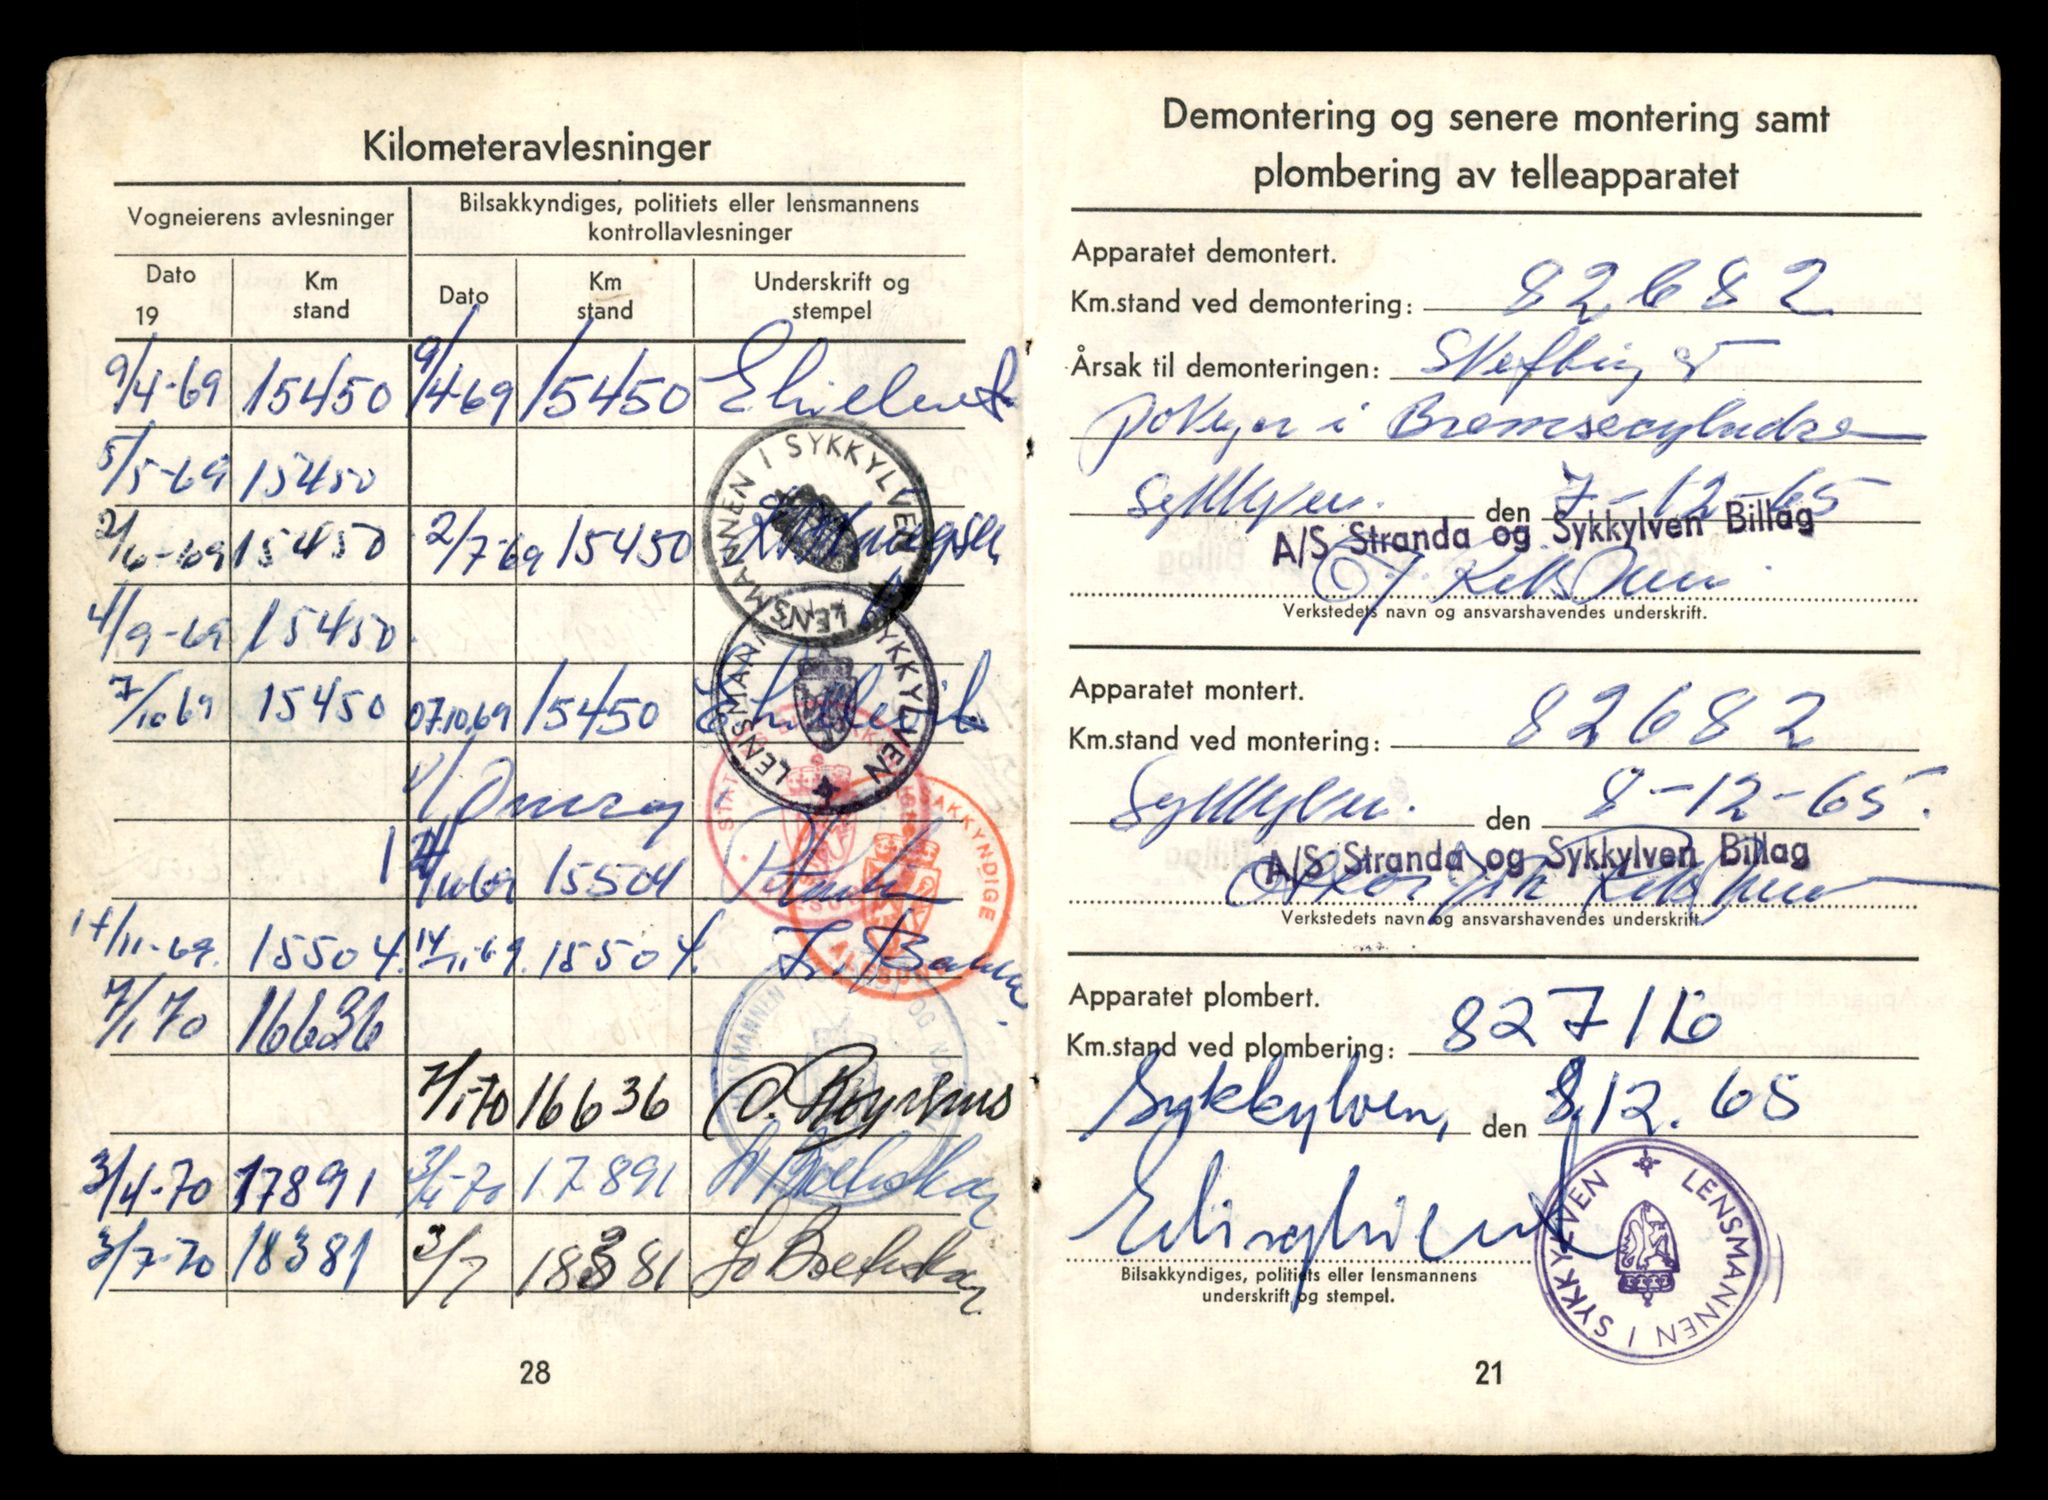 Kilometeravlesninger
Vogneierens avlesninger
Bilsakkyndiges, politiets eller lensmannens kontrollavlesninger
Dato 19
Km stand
Dato
Km stand
Underskrift og stempel
9/4-69 15450 9/4-69 15450
5/5-69 15450
2/6-69 15450 2/7-69 15450
4/9-69 15450
7/10 69 15450 07.10.69 15450
15504
17/11-69. 15504. 14/11-69. 15504.
7/1 70 16636
7/1-70 16636
3/4-70 17891 3/4-70 17891
3/7-70 18381 3/7 18381
LENSMANNEN I SYKKYLVEN
LENSMANNEN I SYKKYLVEN
28
Demontering og senere montering samt
plombering av telleapparatet
Apparatet demontert.
Km.stand ved demontering: 82682
Årsak til demonteringen:
i Bremsecylndre
Sykkylven. den 7-12-65
A/S Stranda og Sykkylven Billag
Verkstedets navn og ansvarshavendes underskrift.
Apparatet montert.
Km.stand ved montering: 82682
Sykkylven. den 8-12-65.
A/S Stranda og Sykkylven Billag
Verkstedets navn og ansvarshavendes underskrift.
Apparatet plombert.
Km.stand ved plombering: 82716
Sykkylven, den 8.12.65
LENSMANNEN I SYKKYLVEN
Bilsakkyndiges, politiets eller lensmannens
underskrift og stempel.
21